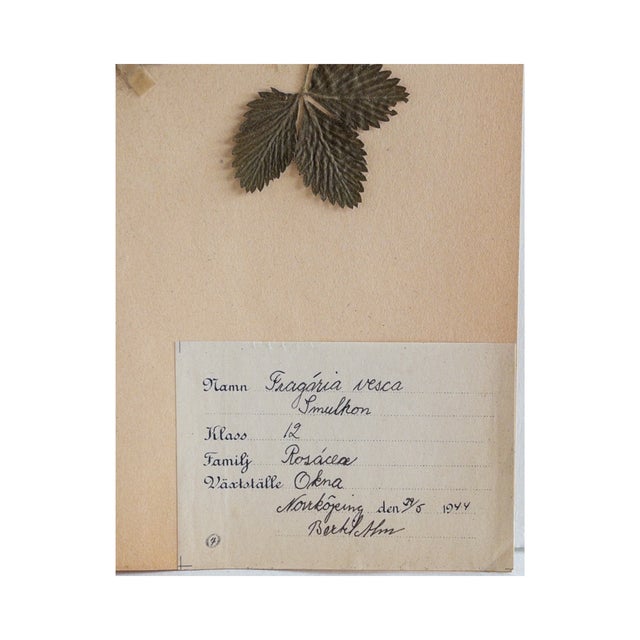 Namn Fragária vesca
Smultron
Klass 12
Familj Rosáceæ
Växtställe Okna
Norrköping den 29/5 1944
Alm